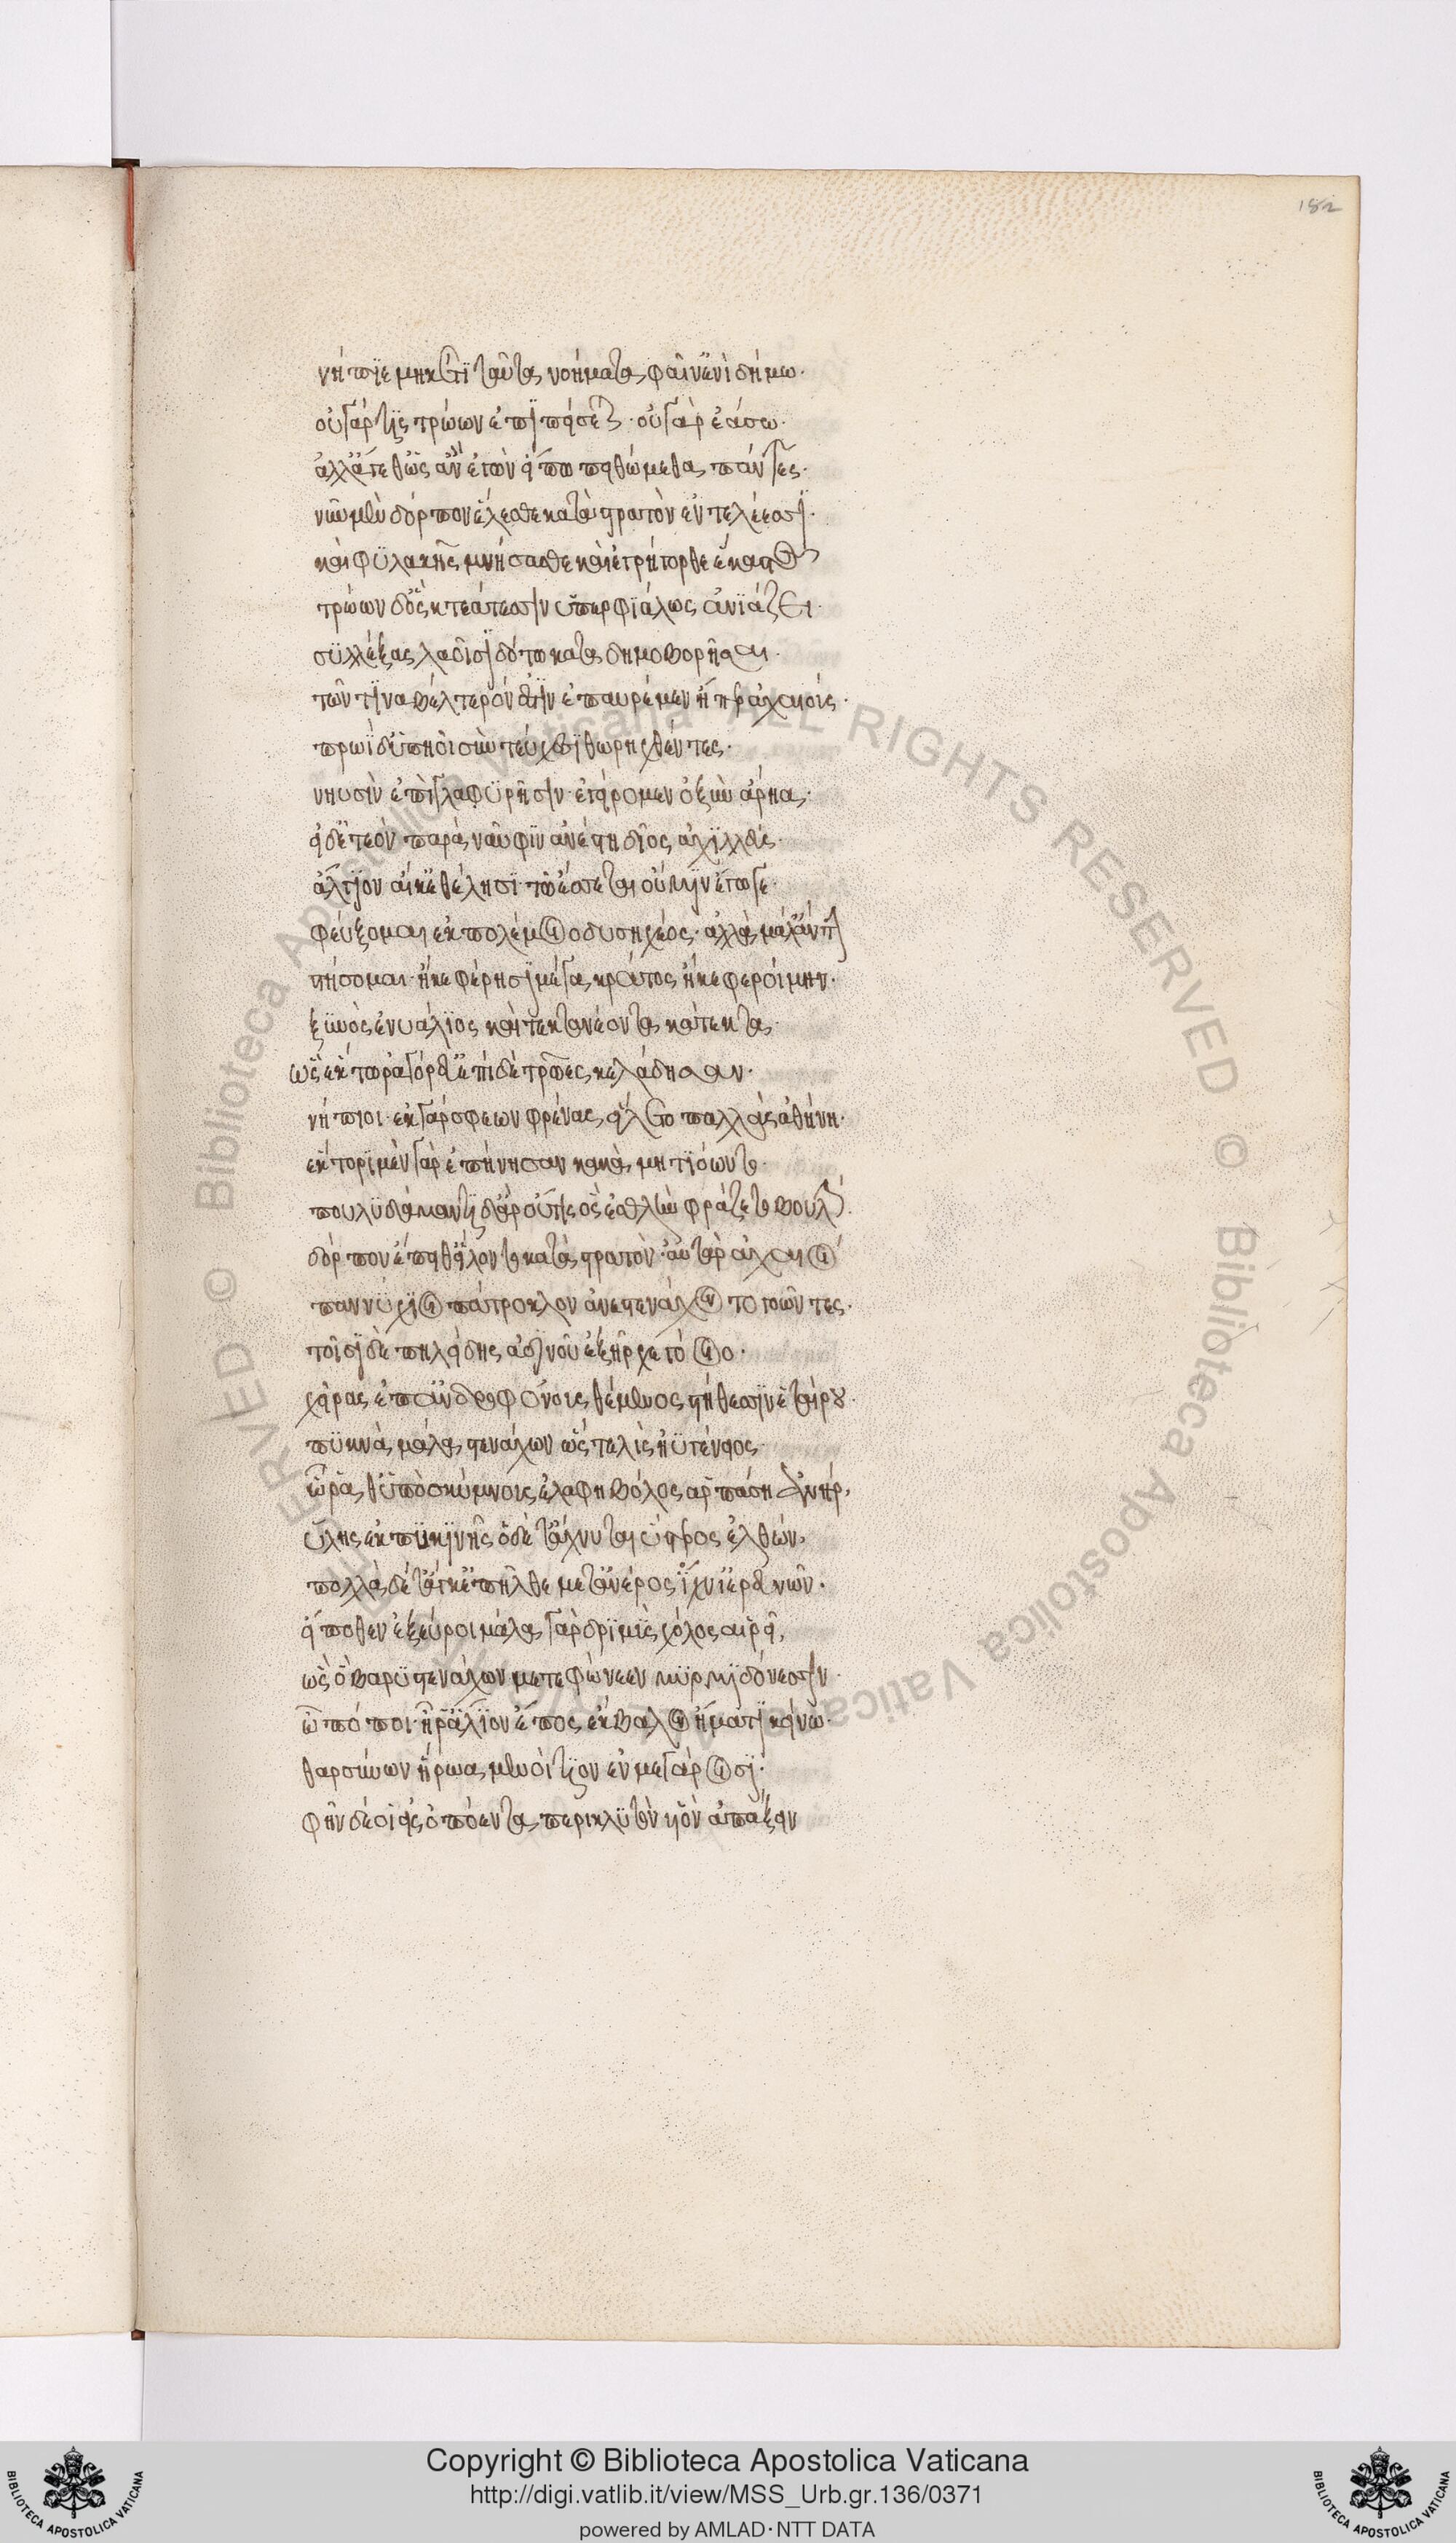 182
νήπϊε μηκέτϊ ταῦτα νοήματα φαῖν' ἐνὶ δήμω·
οὐ γάρ τϊς τρώων ἐπϊπείσεται· οὐ γὰρ ἐάσω·
ἀλλ' ἄγεθ' ὡς ἂν ἐγὼν εἴπω πειθώμεθα πάντες·
νῦν μὲν δόρπον ἕλεσθε κατὰ στρατὸν ἐν τελέεσσϊ·
καὶ φϋλακῆς μνήσασθε καὶ ἐγρήγορθε ἕκαστος
τρώων δ' ὃς κτεάτεσσϊν ὑπερφϊάλως ἀνϊάζει·
σϋλλέξας λαοῖσϊ δότω καταδημοβορῆσαι·
τῶν τϊνα βέλτερόν ἐστϊν ἐπαυρέμεν ἤπερ ἀχαιούς·
πρωῒ δ' ὑπηοῖοι σὺν τεύχεσϊ θωρηχθέντες·
νηυσὶν ἐπὶ γλαφϋρῆσϊν ἐγείρομεν ὀξὺν ἄρηα·
εἰ δ' ἐτεὸν παρὰ ναῦφϊν ἀνέστη δῖος ἀχϊλλεύς·
ἄλγϊον αἴ κ' ἐθέλησϊ τῶ ἔσσεται οὔ μϊν ἔγωγε·
φεύξομαι ἐκ πολέμοιο δυσηχέος· ἀλλὰ μάλ' ἄντην
στήσομαι· ἤ κε φέρησϊ μέγα κράτος ἦ κε φεροίμην·
ξϋνὸς ἐνυάλϊος καί τε κτανέοντα κατέκτα·
ὣς ἕκτωρ ἀγόρευ' ἐπὶ δὲ τρῶες κελάδησαν·
νήπιοι· ἐκ γάρ σφεων φρένας εἵλετο παλλὰς ἀθήνη·
ἕκτορϊ μὲν γὰρ ἐπήνησαν κακὰ μητϊόωντι·
πουλϋδάμαντϊ δ' ἄρ' οὔτϊς ὃς ἐσθλὴν φράζετο βουλήν·
δόρπον ἔπειθ' εἵλοντο κατὰ στρατόν· αὐτὰρ ἀχαιοί
παννύχϊοι πάτροκλον ἀνεστενάχοντο γοῶντες·
τοῖσϊ δὲ πηλείδης ἁδϊνοῦ ἐξῆρχε γόοιο·
χεῖρας ἐπ' ἀνδροφόνους θέμενος στήθεσσϊν ἑταίρου·
πϋκνὰ μάλα στενάχων ὥς τε λὶς ἠϋγένειος·
ὧ ῥά θ' ὑπὸ σκύμνους ἐλαφηβόλος ἁρπάση ἀνήρ,
ὕλης ἐκ πϋκϊνῆς ὁ δέ τ' ἄχνυται ὕστερος ἐλθών,
πολλὰ δέ τ' ἄγκε' ἐπῆλθε μετ' ἀνέρος ἴχνϊ' ἐρευνῶν·
εἴ ποθεν ἐξεύροι μάλα γὰρ δρϊμὺς χόλος αἱρεῖ,
ὣς ὃ βαρὺ στενάχων μετεφώνεεν μϋρμϊδόνεσσϊν·
ὢ πόποι· ἦ ῥ' ἅλϊον ἔπος ἔκβαλον ἤματϊ κείνω·
θαρσύνων ἥρωα μενοίτϊον ἐν μεγάροισϊ·
φῆν δέ οἱ εἰς ὀπόεντα περϊκλϋτὸν υἱὸν ἀπάξειν
Copyright © Biblioteca Apostolica Vaticana
http://digi.vatlib.it/view/MSS_Urb.gr.136/0371
powered by AMLAD·NTT DATA